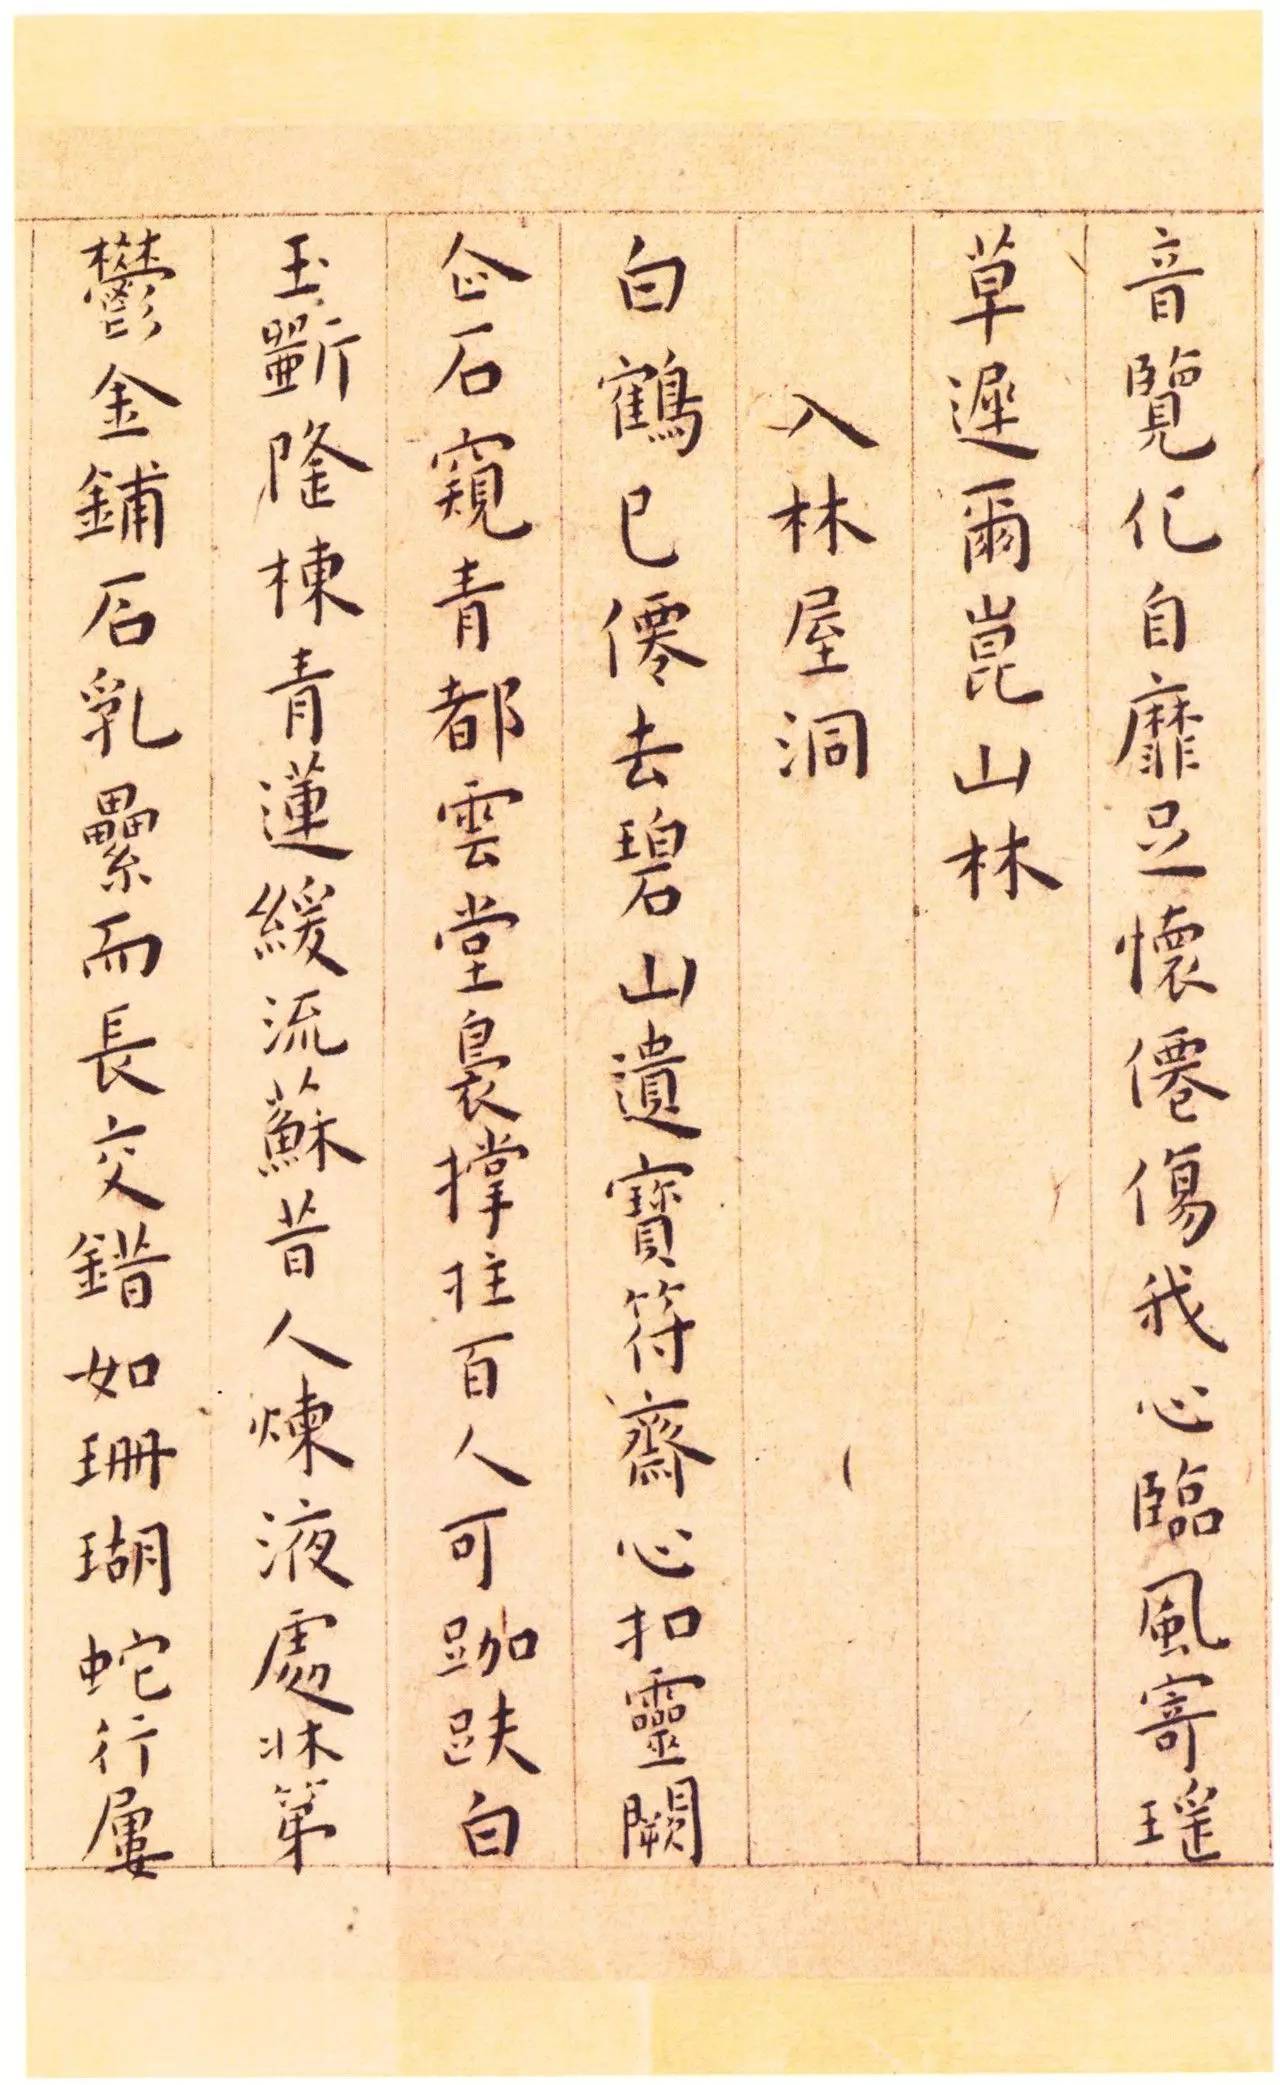 音覽化自靡足懷僊傷我心臨風寄瑤
草遲爾崑山林
入林屋洞
白鶴已僊去碧山遺寶符齋心扣靈闕
企石窺青都雲堂裊撑拄百人可跏趺白
玉斲隆棟青蓮緩流蘇昔人煉液處牀第
鬱金鋪石乳纍而長交錯如珊瑚蛇行屢